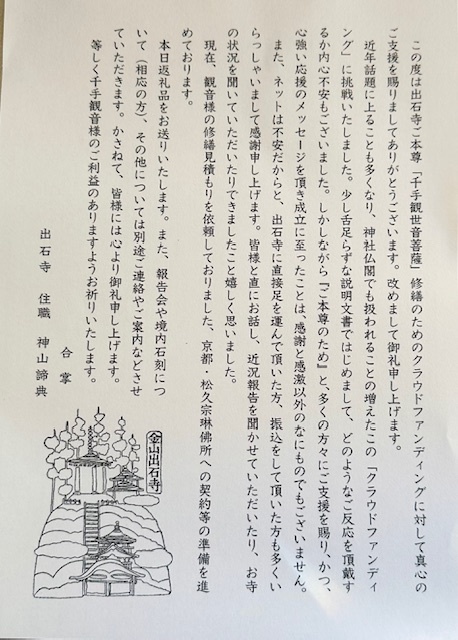 この度は出石寺ご本尊「千手観世音菩薩」修繕のためのクラウドファンディングに対して真心の
ご支援を賜りましてありがとうございます。改めまして御礼申し上げます。
近年話題に上ることも多くなり、神社仏閣でも扱われることの増えたこの「クラウドファンディ
ング」に挑戦いたしました。少し舌足らずな説明文書ではじめまして、どのようなご反応を頂戴す
るか内心不安もございました。しかしながら『ご本尊のため』と、多くの方々にご支援を賜り、かつ、
心強い応援のメッセージを頂き成立に至ったことは、感謝と感激以外のなにものでもございません。
また、ネットは不安だからと、出石寺に直接足を運んで頂いた方、振込をして頂いた方も多くい
らっしゃいまして感謝申し上げます。皆様と直にお話し、近況報告を聞かせていただいたり、お寺
の状況を聞いていただいたりできましたこと嬉しく思いました。
現在、観音様の修繕見積もりを依頼しておりました、京都・松久宗琳佛所への契約等の準備を進
めております。
本日返礼品をお送りいたします。また、報告会や境内石刻につ
いて（相応の方）、その他については別途ご連絡やご案内などさせ
ていただきます。かさねて、皆様には心より御礼申し上げます。
等しく千手観音様のご利益のありますようお祈りいたします。
合掌
出石寺 住職 神山諦典
金山出石寺